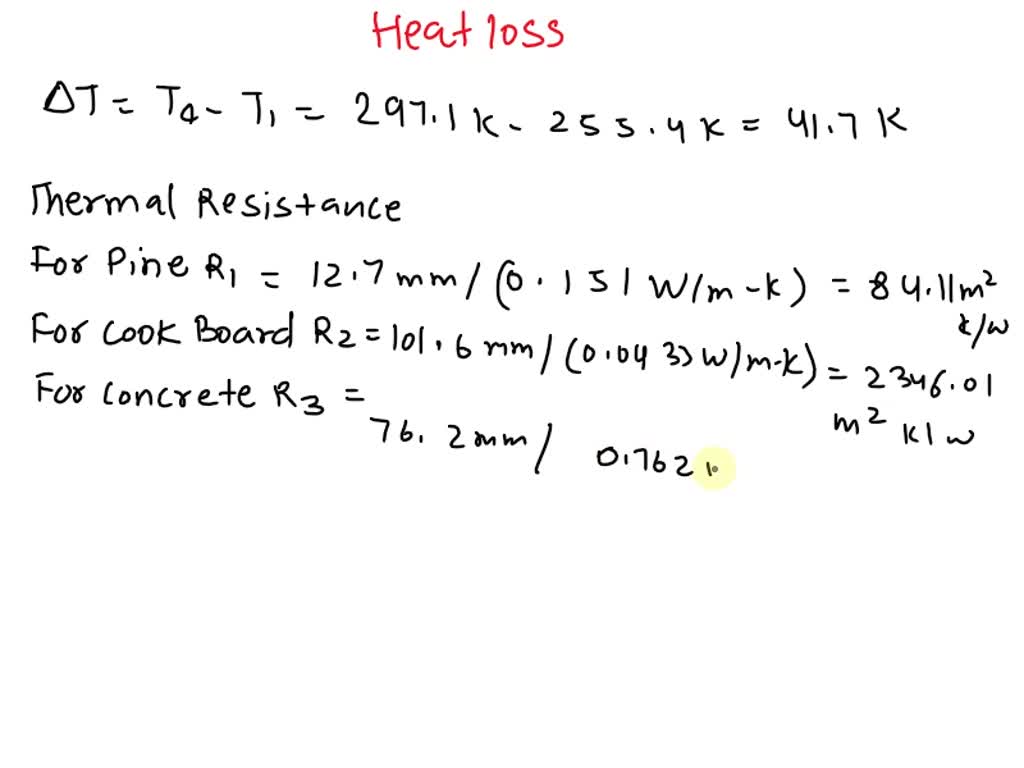 Heat loss
ΔT = T4 - T1 = 297.1 k - 255.4 k = 41.7 K
Thermal Resistance
For Pine R1 = 12.7 mm / (0.151 W/m-k) = 84.11 m² k/w
For Cook Board R2 = 101.6 mm / (0.0433 W/m-k) = 2346.01 m² k/w
For Concrete R3 = 76.2 mm / 0.762